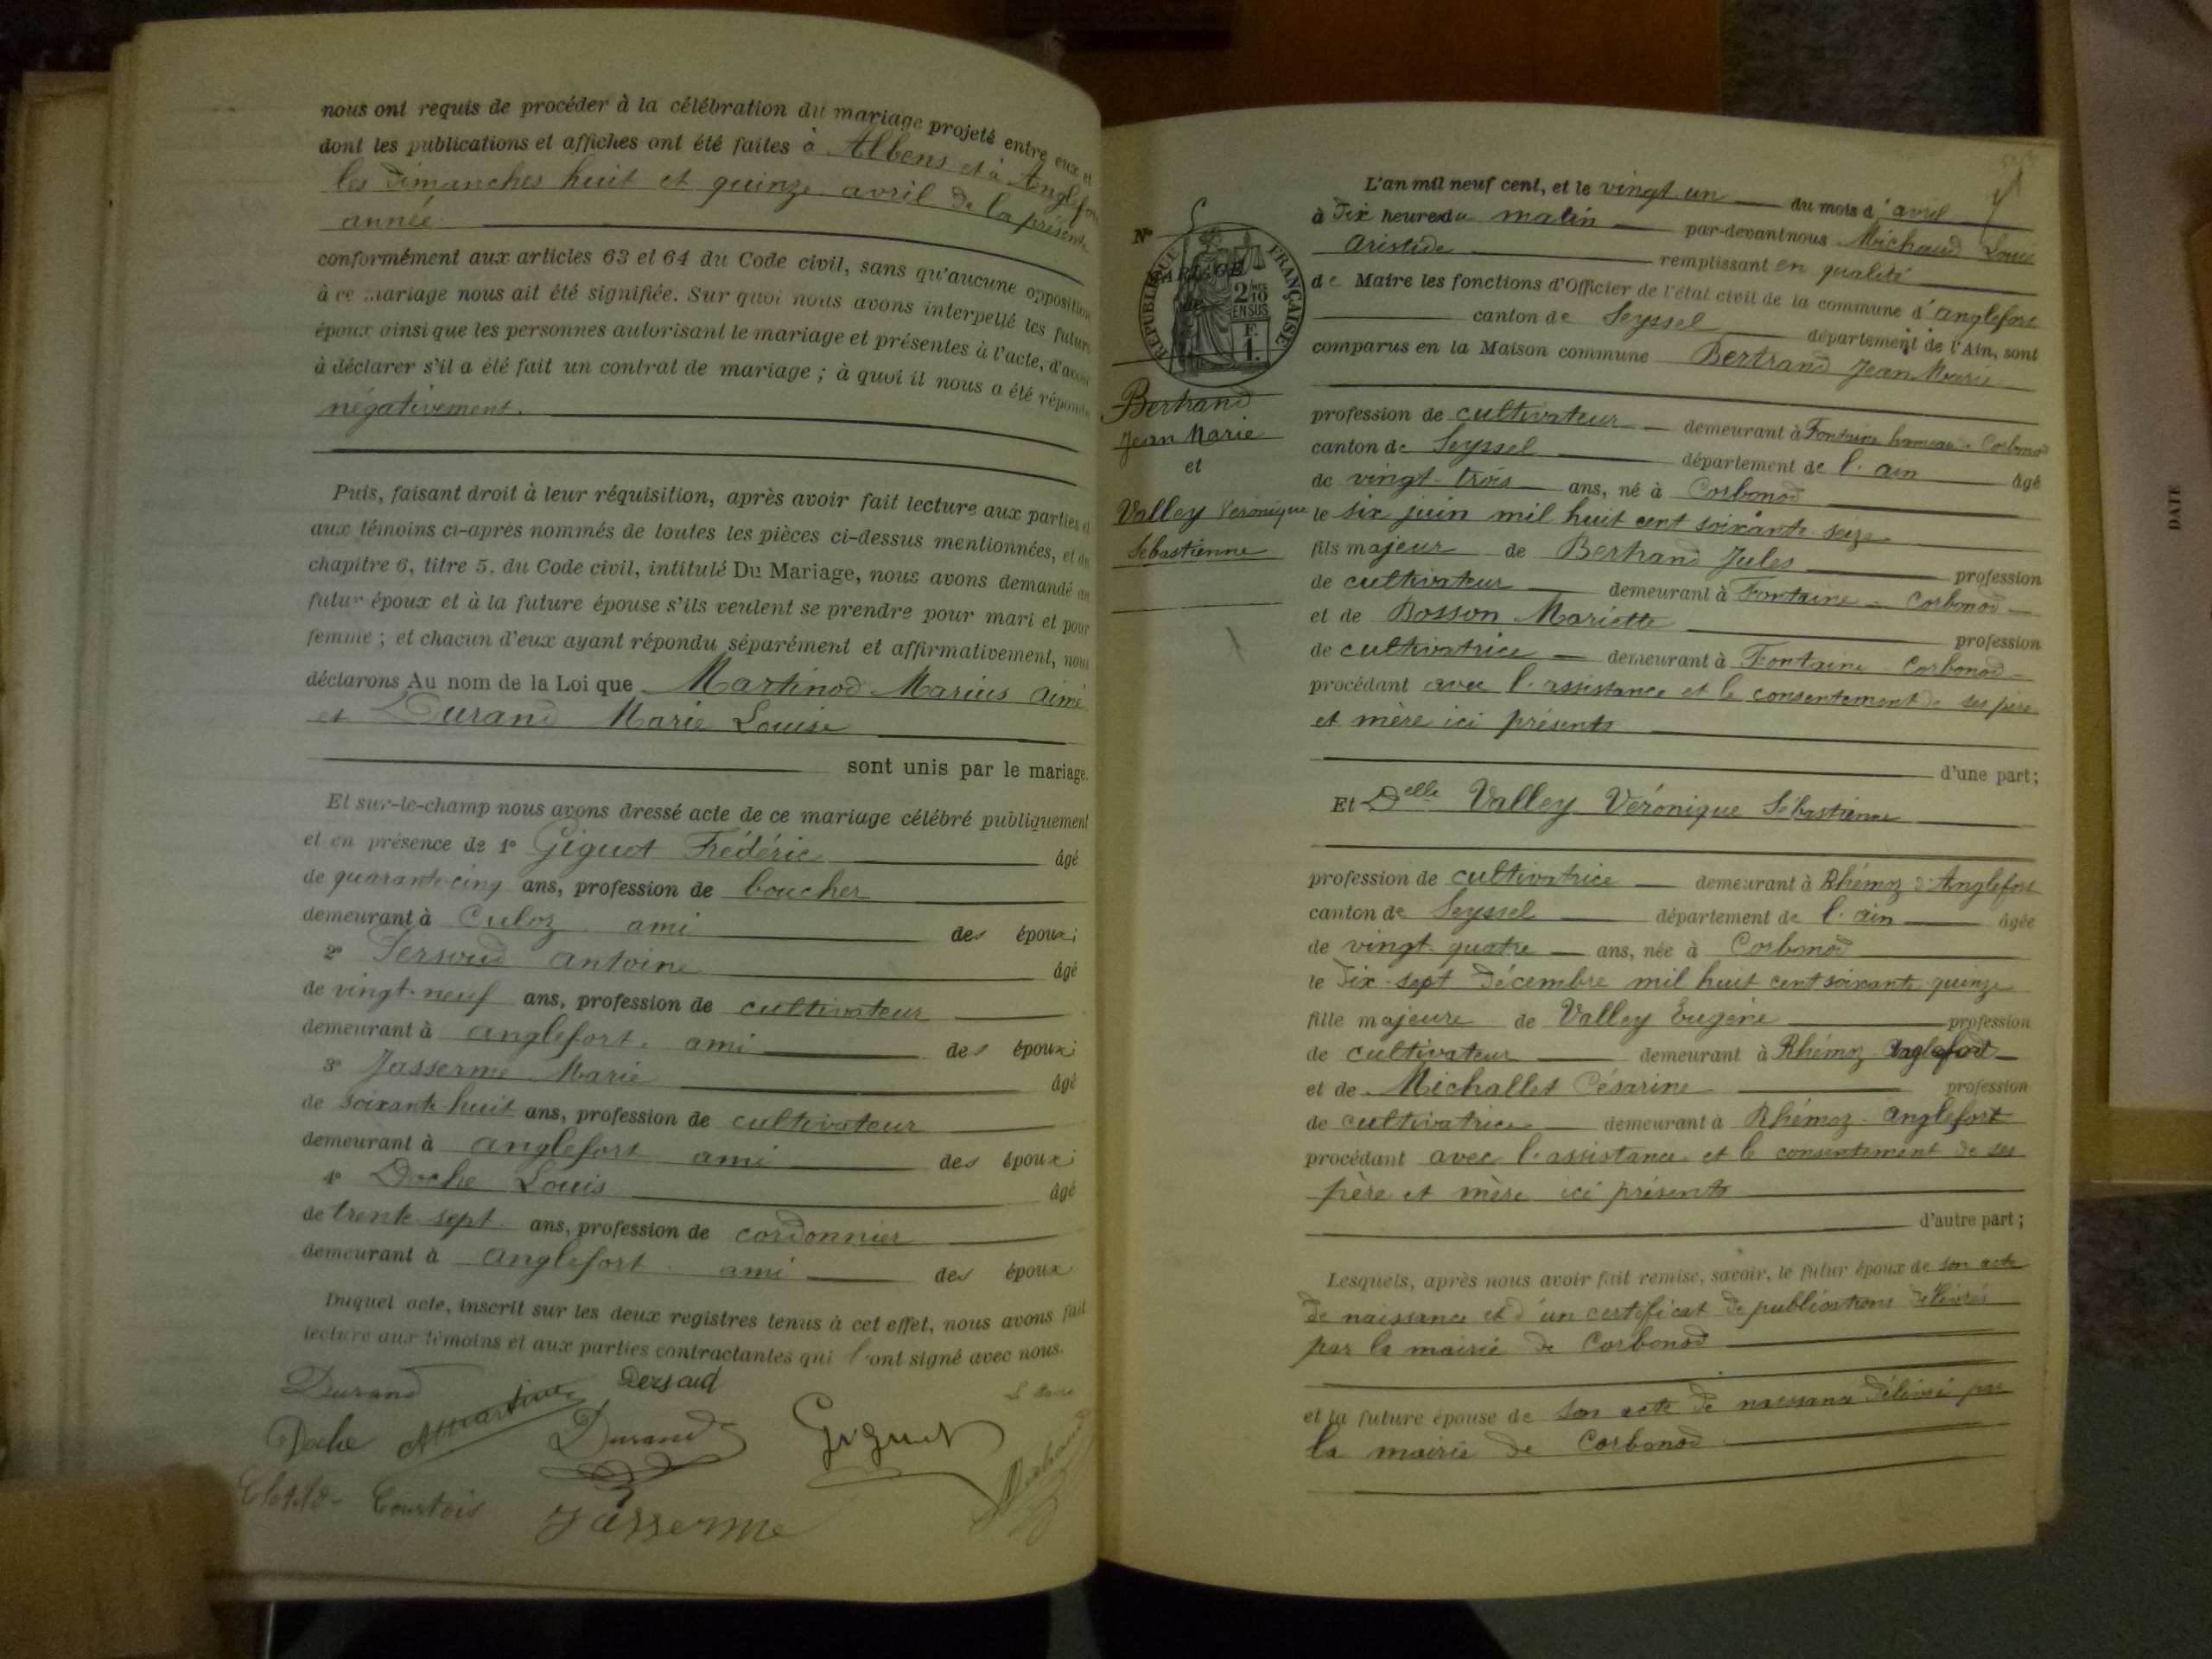 nous ont requis de procéder à la célébration du mariage projeté entre eux et
dont les publications et affiches ont été faites à Albens et à Anglefort
les dimanches huit et quinze avril de la présente
année
conformément aux articles 63 et 64 du Code civil, sans qu'aucune opposition
à ce mariage nous ait été signifiée. Sur quoi nous avons interpellé les futurs
époux ainsi que les personnes autorisant le mariage et présentes à l'acte, d'avoir
à déclarer s'il a été fait un contrat de mariage ; à quoi il nous a été répondu
négativement.
Puis, faisant droit à leur réquisition, après avoir fait lecture aux parties et
aux témoins ci-après nommés de toutes les pièces ci-dessus mentionnées, et du
chapitre 6, titre 5, du Code civil, intitulé Du Mariage, nous avons demandé au
futur époux et à la future épouse s'ils veulent se prendre pour mari et pour
femme ; et chacun d'eux ayant répondu séparément et affirmativement, nous
déclarons Au nom de la Loi que Martinod Marius Aimé
et Durand Marie Louise
sont unis par le mariage.
Et sur-le-champ nous avons dressé acte de ce mariage célébré publiquement
et en présence de 1° Giguet Frédéric âgé
de quarante-cinq ans, profession de boucher
demeurant à Culoz ami des époux;
2° Dersoud Antoine âgé
de vingt-neuf ans, profession de cultivateur
demeurant à Anglefort. ami des époux;
3° Jasserme Marie âgé
de soixante-huit ans, profession de cultivateur
demeurant à Anglefort ami des époux;
4° Doche Louis âgé
de trente sept ans, profession de cordonnier
demeurant à Anglefort ami des époux
Duquel acte, inscrit sur les deux registres tenus à cet effet, nous avons fait
lecture aux témoins et aux parties contractantes qui l'ont signé avec nous.
Durand Dersoud
Doche Durand Giguet
Courtois Jasserme
L'an mil neuf cent, et le vingt un du mois d'avril
à dix heures du matin par-devant nous Michaud Louis
Aristide remplissant en qualité
de Maire les fonctions d'Officier de l'état civil de la commune d'Anglefort
canton de Seyssel département de l'Ain, sont
comparus en la Maison commune Bertrand Jean Marie
profession de cultivateur demeurant à Fontaine hameau Corbonod
canton de Seyssel département de l'ain âgé
de vingt-trois ans, né à Corbonod
le six juin mil huit cent soixante seize
fils majeur de Bertrand Jules profession
de cultivateur demeurant à Fontaine - Corbonod
et de Bosson Mariette profession
de cultivatrice demeurant à Fontaine Corbonod
procédant avec l'assistance et le consentement de ses père
et mère ici présents
d'une part;
Et Delle Valley Véronique Sébastienne
profession de cultivatrice demeurant à Rhémoz d'Anglefort
canton de Seyssel département de l'ain âgée
de vingt-quatre ans, née à Corbonod
le dix-sept décembre mil huit cent soixante-quinze
fille majeure de Valley Eugène profession
de cultivateur demeurant à Rhémoz Anglefort
et de Michallet Césarine profession
de cultivatrice demeurant à Rhémoz-Anglefort
procédant avec l'assistance et le consentement de ses
père et mère ici présents
d'autre part;
Lesquels, après nous avoir fait remise, savoir, le futur époux de son acte
de naissance et d'un certificat de publications délivrés
par la mairie de Corbonod
et la future épouse de son acte de naissance délivré par
la mairie de Corbonod
N°
MARIAGE
de
Bertrand
Jean Marie
et
Valley Véronique
Sébastienne
RÉPUBLIQUE FRANÇAISE
2/10
EN SUS
F.
1.
DATE